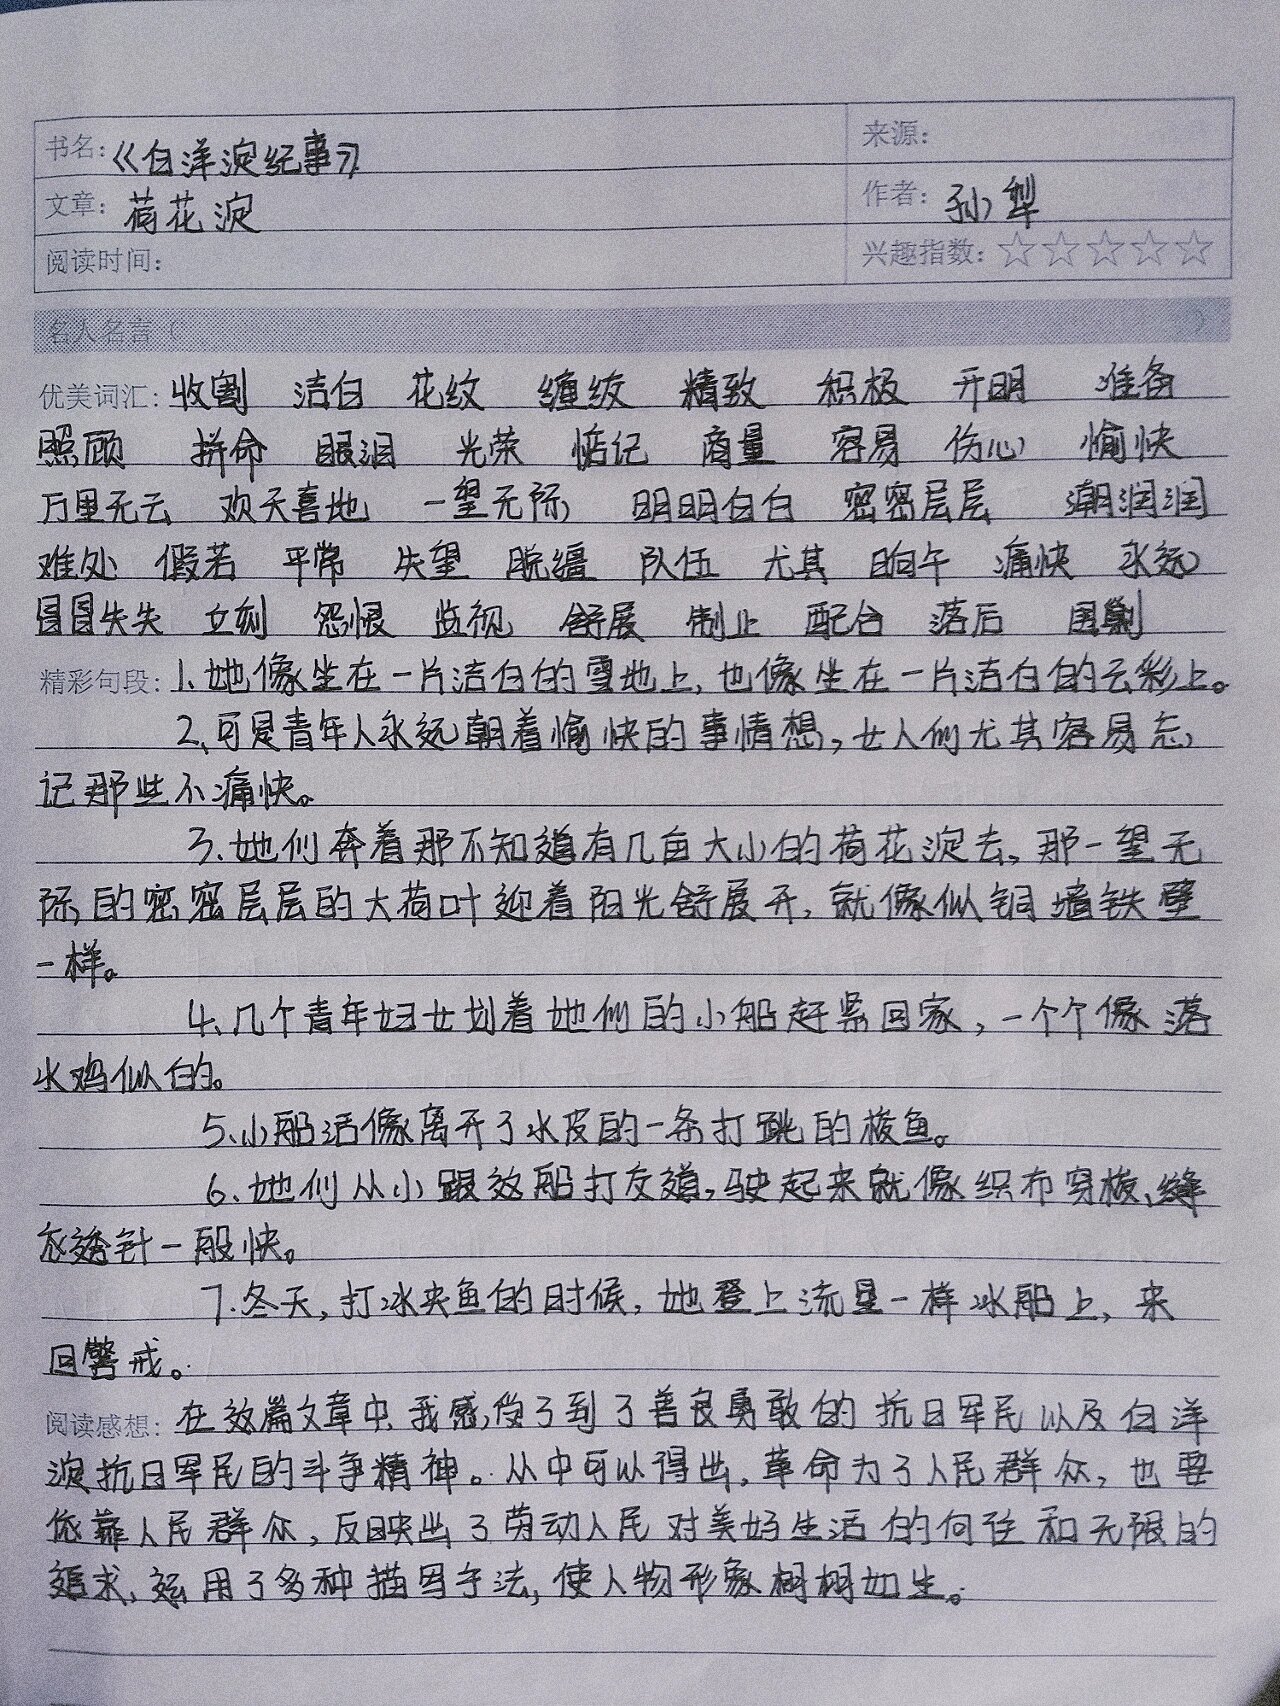 书名：《白洋淀纪事》 来源：
文章：荷花淀 作者：孙犁
阅读时间： 兴趣指数：☆☆☆☆☆
名人名言（ ）
优美词汇：收割 洁白 花纹 缠绞 精致 积极 开明 准备
照顾 拼命 眼泪 光荣 惦记 商量 容易 伤心 愉快
万里无云 欢天喜地 一望无际 明明白白 密密层层 潮润润
难处 假若 平常 失望 脱缰 队伍 尤其 晌午 痛快 永远
冒冒失失 立刻 怨恨 监视 舒展 制止 配合 落后 围剿
精彩句段：1、她像坐在一片洁白的雪地上，也像坐在一片洁白的云彩上。
2、可是青年人永远朝着愉快的事情想，女人们尤其容易忘
记那些不痛快。
3、她们奔着那不知道有几亩大小的荷花淀去，那一望无
际的密密层层的大荷叶迎着阳光舒展开，就像似铜墙铁壁
一样。
4、几个青年妇女划着她们的小船赶紧回家，一个个像落
水鸡似的。
5、小船活像离开了水皮的一条打跳的梭鱼。
6、她们从小跟这船打交道，驶起来就像织布穿梭、缝
衣透针一般快。
7、冬天，打冰夹鱼的时候，她登上流星一样冰船上，来
回警戒。
阅读感想：在这篇文章中，我感受了到了善良勇敢的抗日军民以及白洋
淀抗日军民的斗争精神。从中可以得出，革命为了人民群众，也要
依靠人民群众，反映出了劳动人民对美好生活的向往和无限的
追求，运用了多种描写手法，使人物形象栩栩如生。